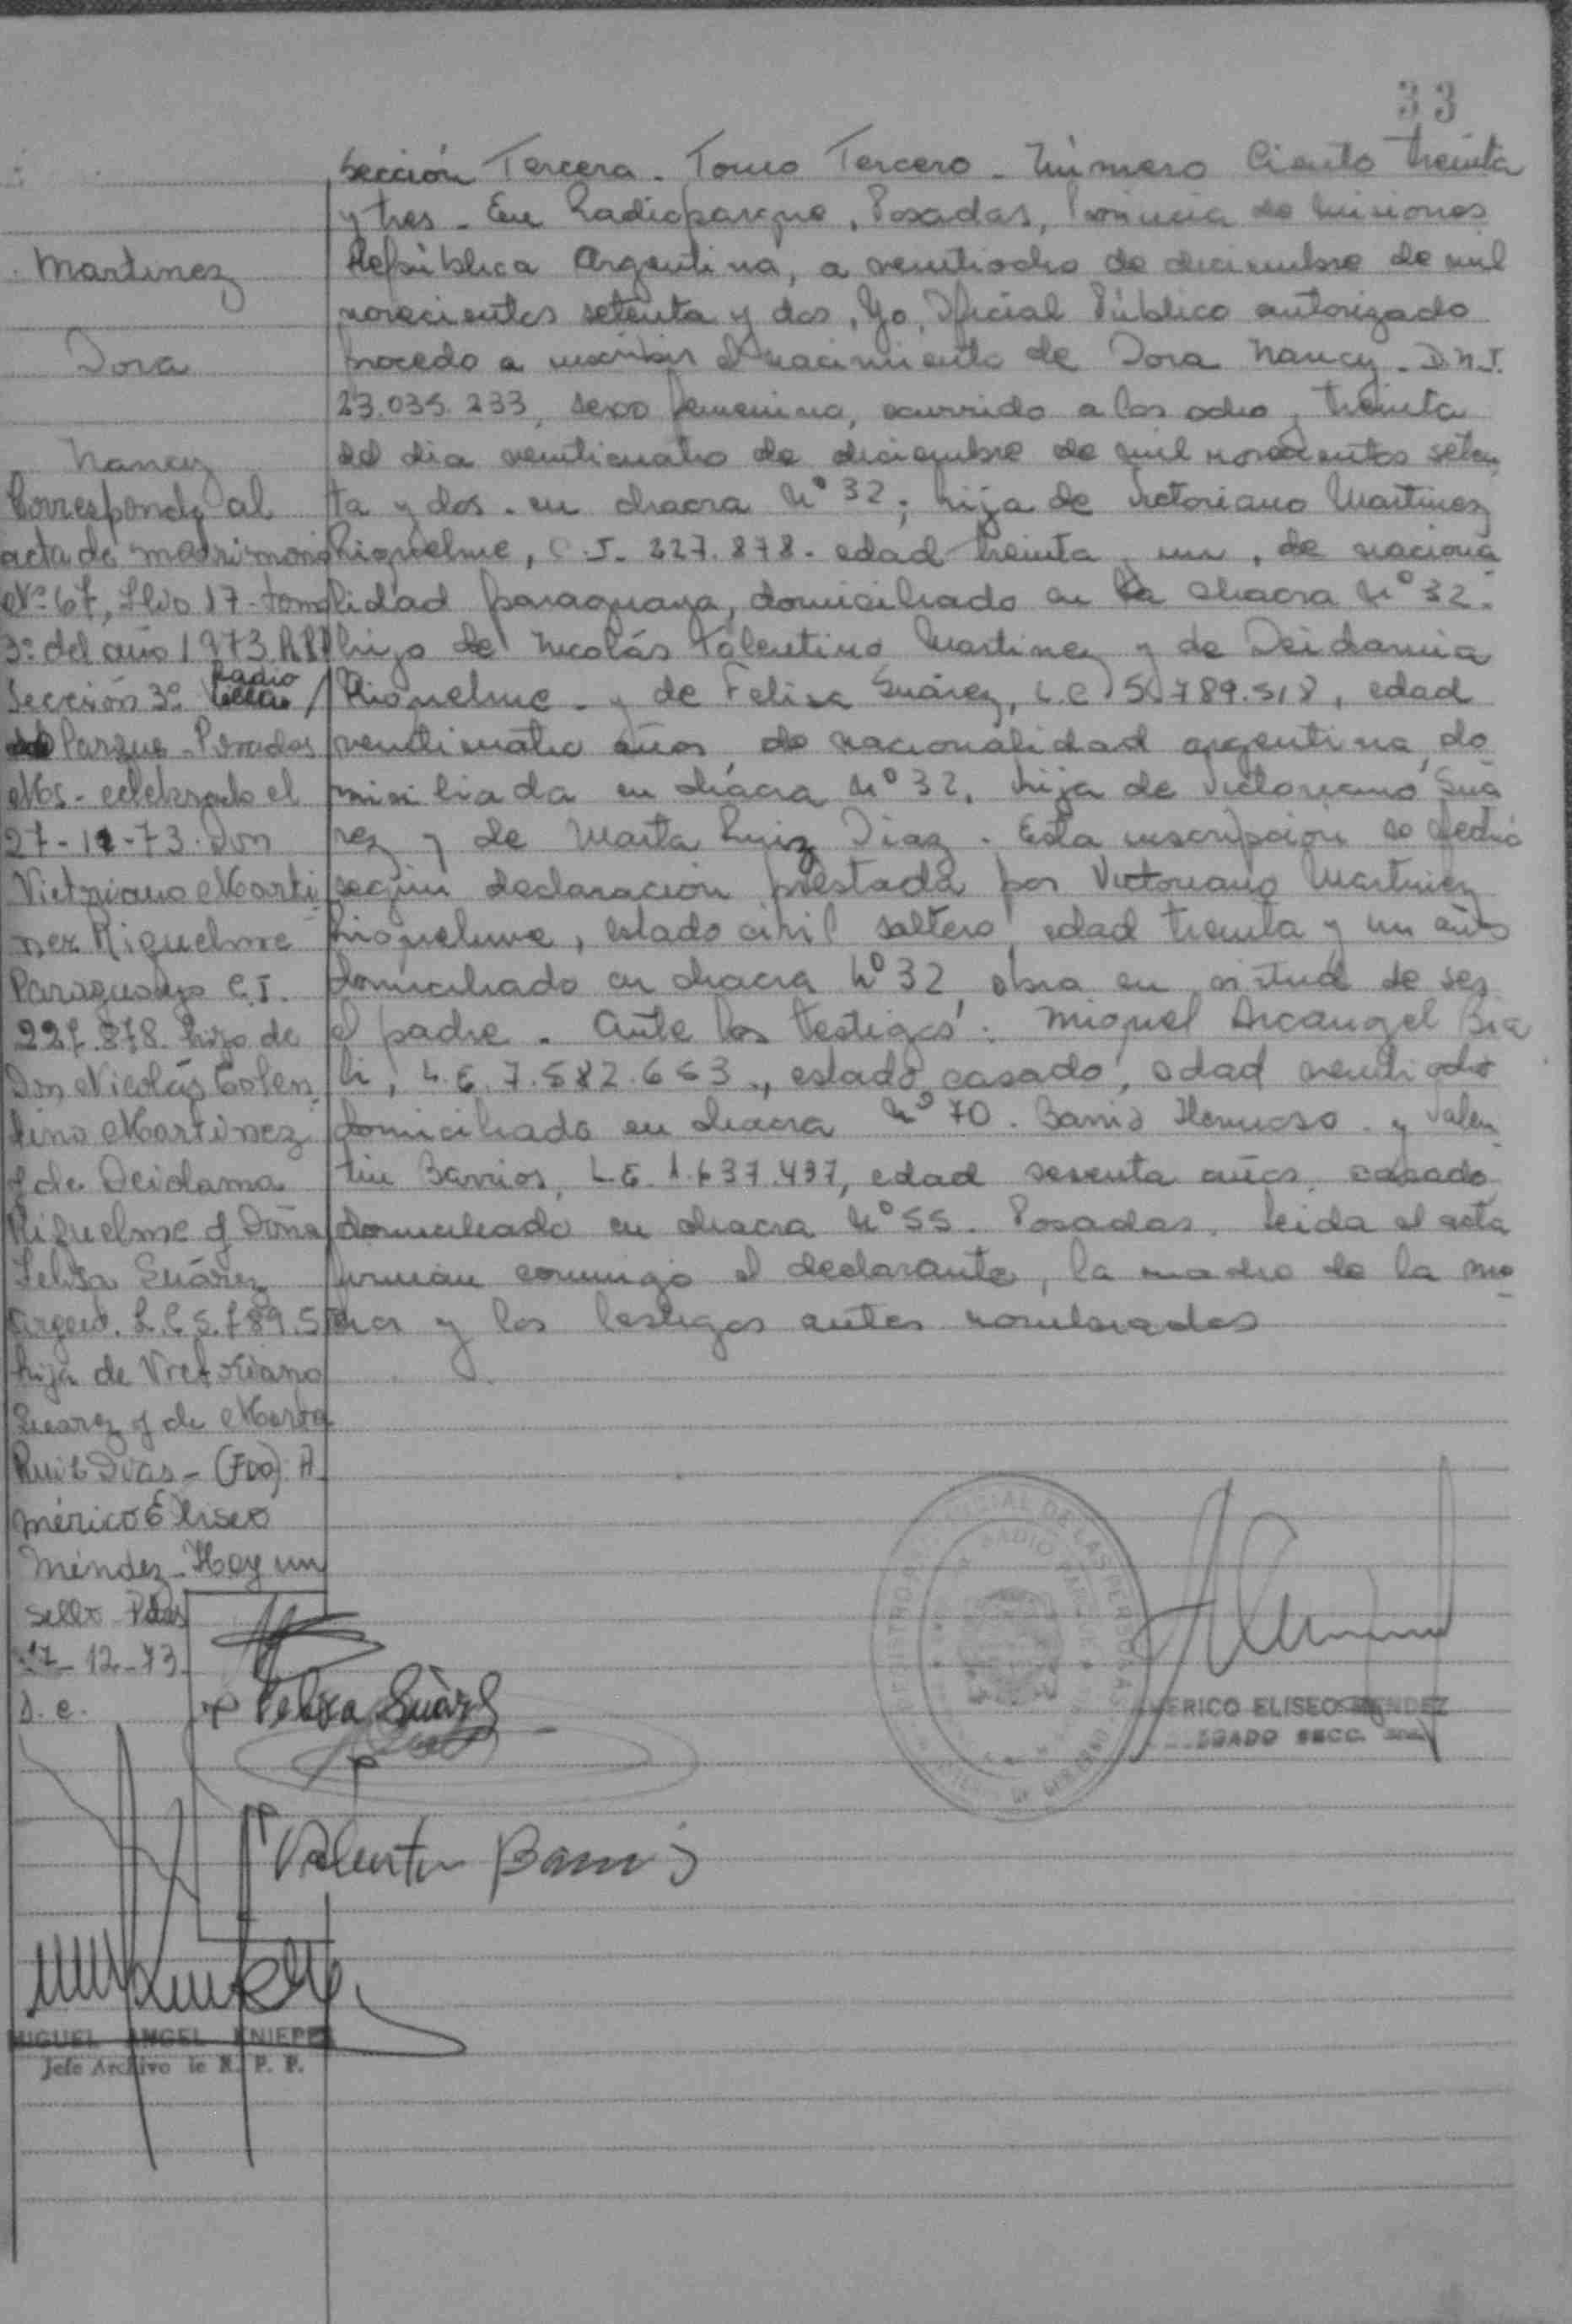 33
Sección Tercera. Tomo Tercero. Número Ciento treinta
y tres. En Radioparque, Posadas, Provincia de Misiones
República Argentina, a veintiocho de diciembre de mil
novecientos setenta y dos, Yo, Oficial Público autorizado
procedo a inscribir el nacimiento de Dora Nancy. D.N.I.
23.035.233, sexo femenino, ocurrido a las ocho y treinta
del dia veinticuatro de diciembre de mil novecientos seten
ta y dos. en chacra Nº 32; hija de Victoriano Martinez
Riquelme, C.I. 227.878. edad treinta y un, de naciona
lidad paraguaya, domiciliado en la chacra Nº 32.
hijo de Nicolás Tolentino Martinez y de Deidamia
Riquelme. y de Felisa Suárez, L.C 5.789.518, edad
veinticuatro años, de nacionalidad argentina, do
miciliada en chacra Nº 32, hija de Victoriano Suá
rez y de Marta Ruiz Diaz. Esta inscripción se efectúa
según declaración prestada por Victoriano Martinez
Riquelme, estado civil soltero, edad treinta y un años
domiciliado en chacra Nº 32, obra en virtud de ser
el padre. Ante los testigos: Miguel Arcangel
L.E. 7.582.653., estado casado, edad veintiocho
domiciliado en chacra Nº 70. Barrio Hermoso. y Valen
tin Barrios, L.E. 1.637.437, edad sesenta años, casado,
domiciliado en chacra Nº 55. Posadas. Leida el acta
firman conmigo el declarante, la madre de la me
nor y los testigos antes nombrados
Martinez
Dora
Nancy
Corresponde al
acta de matrimonio
Nº 67, Libro 17 - tomo
3º del año 1973
Sección 3º Radio
Parque - Posadas
Mns - celebrado el
27-12-73. Don
Victoriano Marti
nez Riquelme
Paraguayo C.I.
227.878. hijo de
Don Nicolás Tolen
tino Martinez
y de Deidama
Riquelme y Doña
Felisa Suárez
argent. L.C 5.789.5
hija de Victoriano
Suarez y de Marta
Ruiz Dias - (Fdo). A
mérico Eliseo
Méndez - Hay un
sello Pdas
17-12-73
Felisa Suárez
Valentin Barrios
RADIO PARQUE
AMERICO ELISEO MENDEZ
MIGUEL ANGEL KNIEPE
Jefe Archivo de R. P. P.